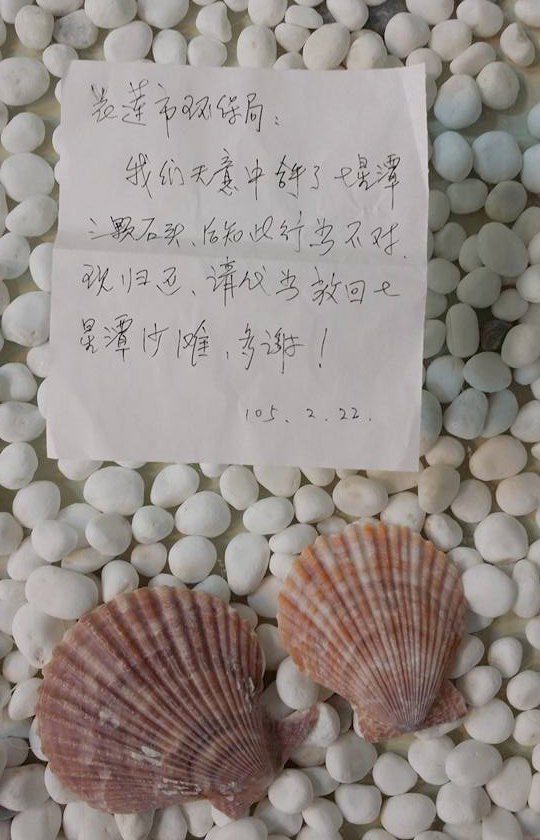 花莲市环保局:
我们无意中拿了七星潭
三颗石头、后知此行为不对.
现归还、请代为放回七
星潭沙滩,多谢!
105.2.22.